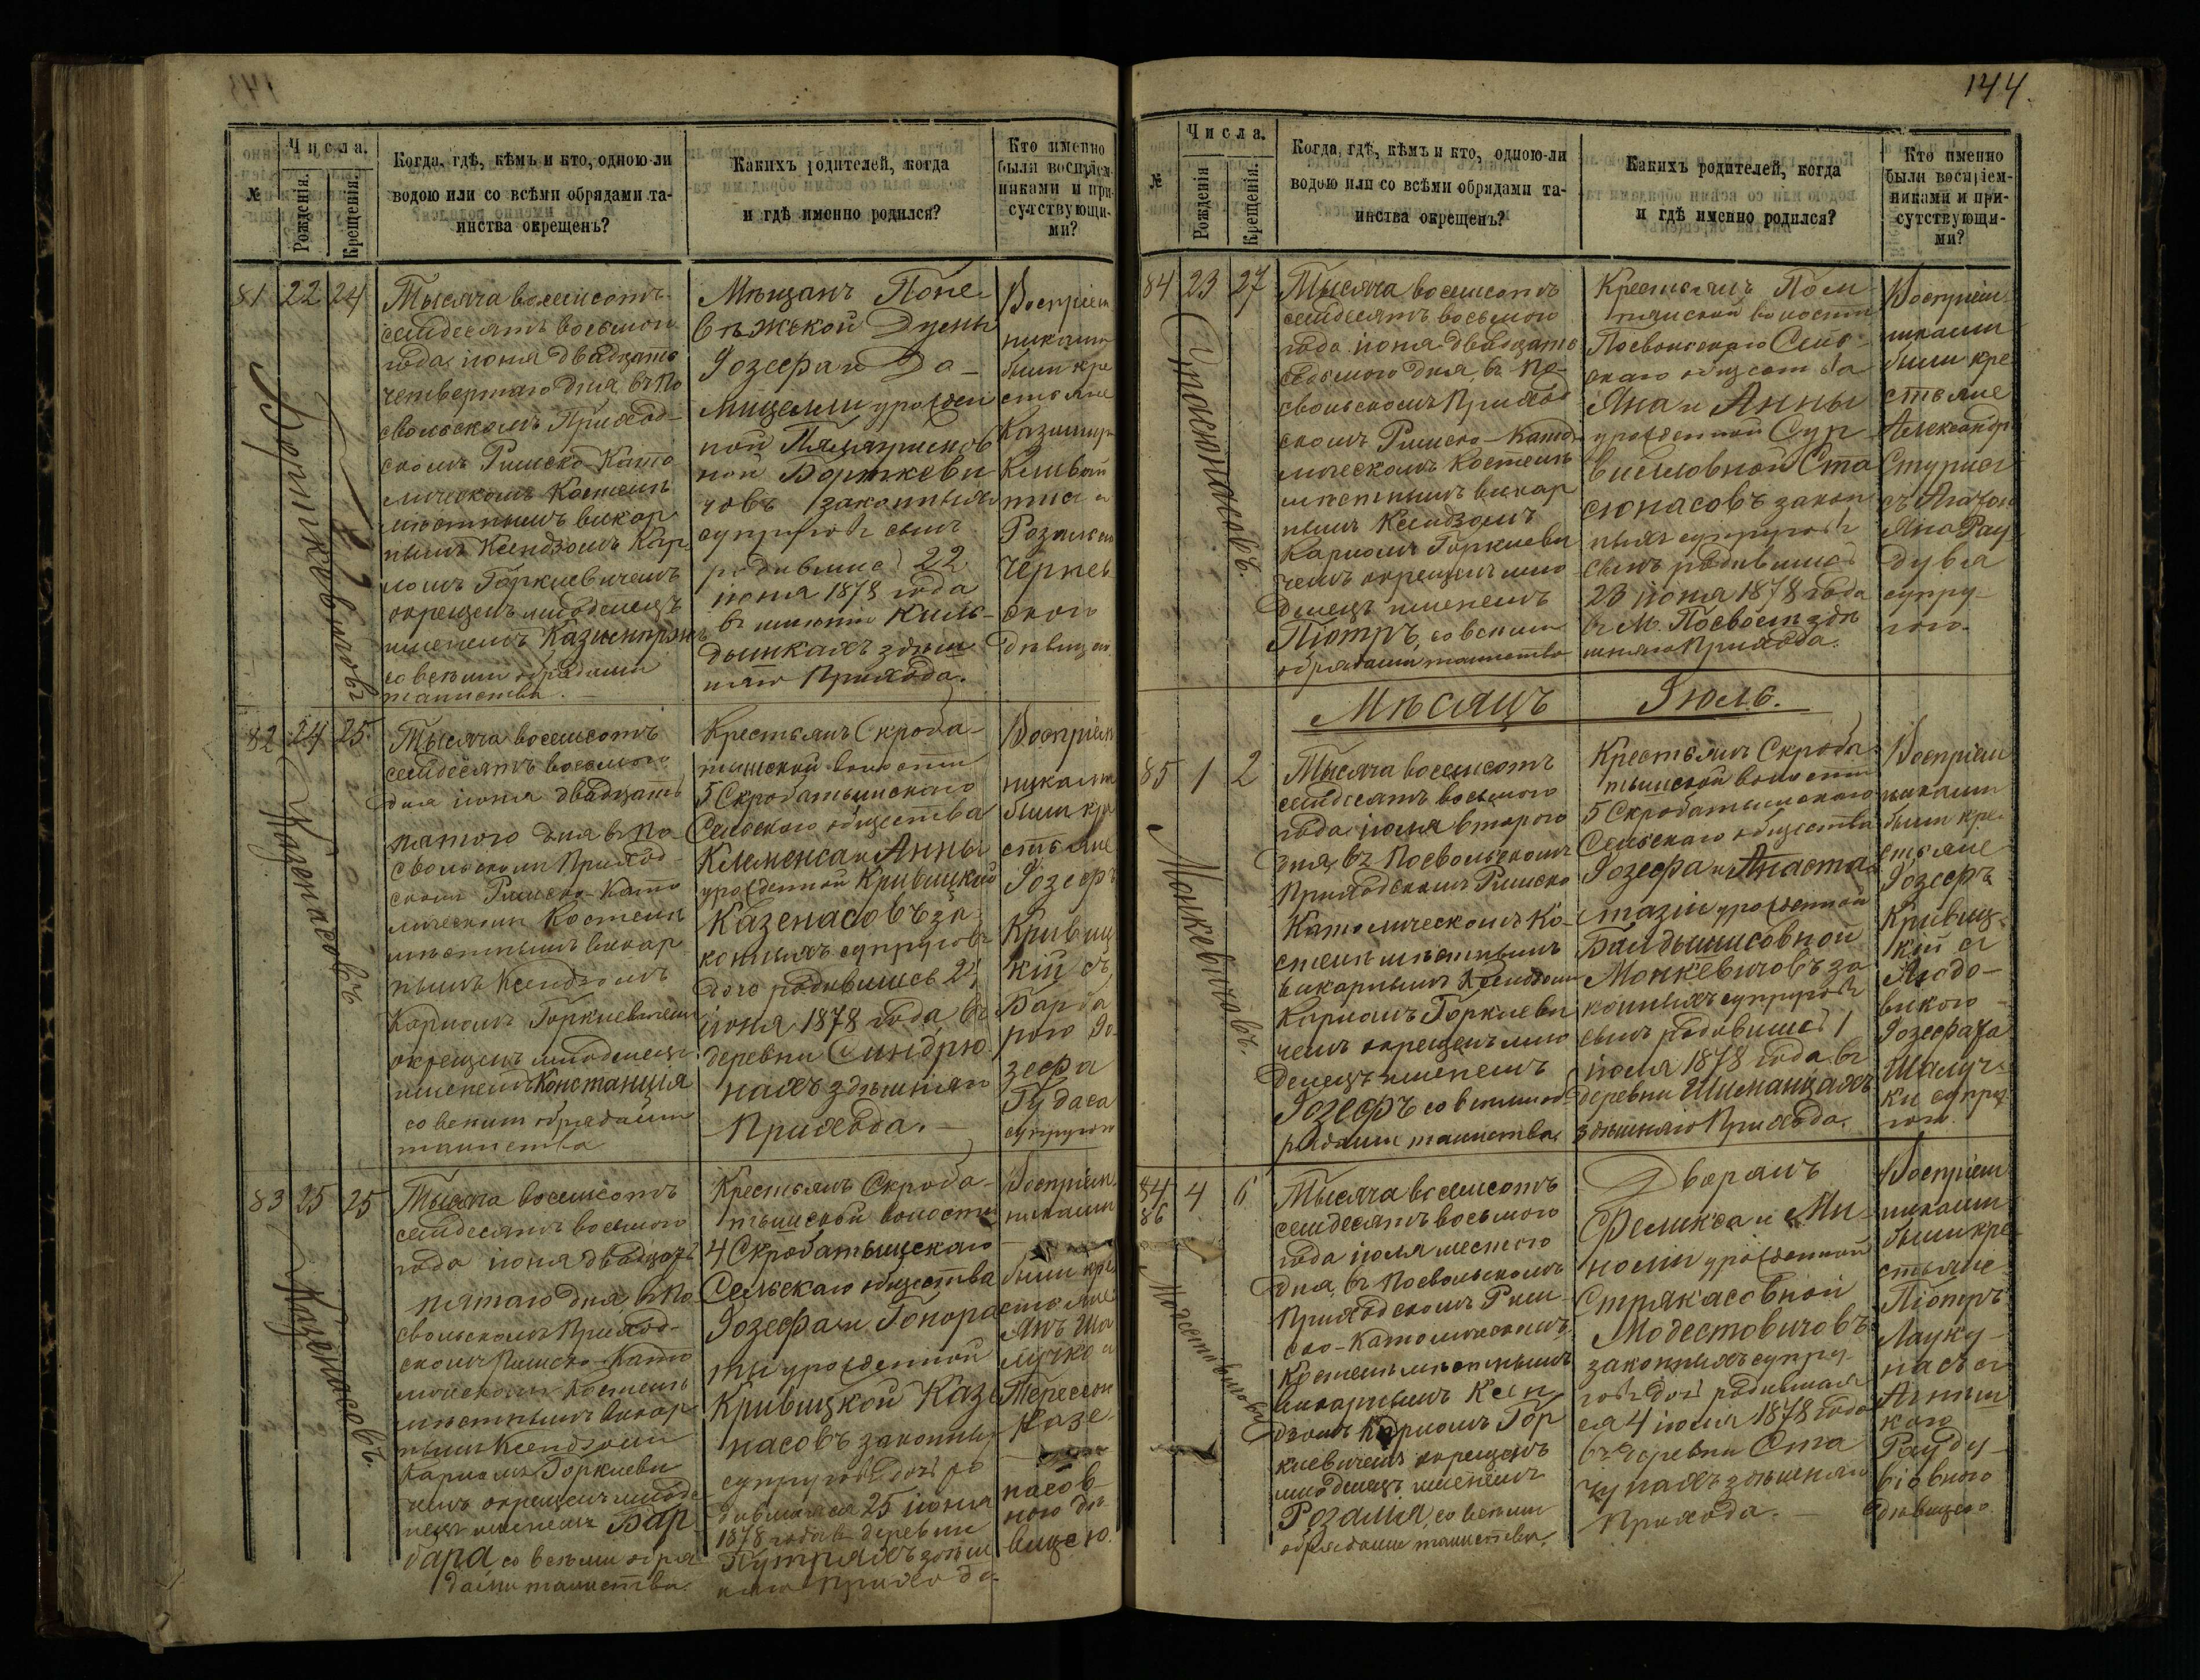 144.
№
Числа.
Рожденія.
Крещенія.
Когда, гдѣ, кѣмъ и кто, одною-ли
водою или со всѣми обрядами та-
инства окрещенъ?
Какихъ родителей, когда
и гдѣ именно родился?
Кто именно
были воспріем-
никами и при-
сутствующи-
ми?
81 22 24
Тысяча восемсотъ
семдесятъ восьмого
года іюня двадцать
четвертаго дня въ По
свольскомъ Приход-
скомъ Римско-Като
лическомъ Костелѣ
мѣстнымъ викар
нымъ Ксендзомъ Кар
ломъ Горкиевичемъ
окрещенъ младенецъ
именемъ
со всѣми обрядами
таинства.
Мѣщанъ Поне-
вѣжской Думы
Іозефа и До-
мицелли урожден
ной
ной Борткеви
човъ законныхъ
супруговъ сынъ
родившійся 22
іюня 1878 года
въ имѣніи Киль-
дышкахъ здѣш
няго Прихода.
Воспріем
никами
были кре
стьяне
Казимиръ
и
дѣвицею
82 24 25
Казенасовъ
Тысяча восемсотъ
семдесятъ восьмого
дня іюня двадцать
пятого дня въ По-
свольскомъ Приход-
скомъ Римско-Като
лическомъ Костелѣ
мѣстнымъ викар
нымъ Ксендзомъ
Карломъ Горкиевичемъ
окрещенъ младенецъ
именемъ Констанція
со всѣми обрядами
таинства
Крестьянъ Скроба-
тишской волости
5 Скробатышского
Сельского общества
Клеменса и Анны
урожденной Кривицкой
Казенасовъ за-
конныхъ супруговъ
дочь родившаяся 24
іюня 1878 года въ
деревни Синдрю
нахъ здѣшнян
Прихода.
Воспріем
никами
были кре
стьяне
Іозефъ
Кривиц
кій съ
Барба
рою Іо
зефа
Гудаса
супругою
83 25 25
Казенасовъ.
Тысяча восемсотъ
семдесятъ восьмого
года іюня двадцать
пятаго дня, въ По-
свольскомъ Приход-
скомъ Римско-Като
лическомъ Костелѣ
мѣстнымъ викар
нымъ Ксендзомъ
Карломъ Горкиеви
чемъ окрещенъ младе
нецъ именемъ Бар
бара со всѣми обря
дами таинства.
Крестьянъ Скроба-
тышской волости
4 Скробатышскаго
Сельскаго общества
Іозефа и Гонора
ты урожденной
Кривицкой Казе
насовъ законныхъ
супруговъ дочь ро
дившаяся 25 іюня
1878 года въ деревни
здѣш
няго Прихода.
Воспріем
никами
были кре
стьяне
Янъ Ша
лучко и
Терессою
Казе-
насов-
ною дѣ-
вицею.
№
Числа.
Рожденія
Крещенія.
Когда, гдѣ, кѣмъ и кто, одною-ли
водою или со всѣми обрядами та-
инства окрещенъ?
Какихъ родителей, когда
и гдѣ именно родился?
Кто именно
были воспріем-
никами и при-
сутствующи-
ми?
84 23 27
Тысяча восемсотъ
семдесятъ восьмого
года іюня двадцать
седьмого дня, въ По-
свольскомъ Приход
скомъ Римско-Като-
лическомъ Костелѣ
мѣстнымъ викар
нымъ Ксендзомъ
Карломъ Горкиеви
чемъ окрещенъ мла
денецъ именемъ
Піотръ, со всѣми
обрядами таинства
Крестьянъ
волости
Посвольскаго Сель-
скаго общества
Яна и Анны
урожденной Сур
виловной Ста
сюнасовъ закон
ныхъ супруговъ
сынъ родившійся
23 іюня 1878 года
въ М. Посволѣ здѣ
шняго Прихода.
Воспріем
никами
были кре
стьяне
Александръ
Яна Рау
дува
супру-
гою.
Мѣсяцъ Іюль.
85 1 2
Монкевичовъ.
Тысяча восемсотъ
семдесятъ восьмого
года іюля второго
дня, въ Посвольскомъ
Приходскомъ Римско
Католическомъ Ко-
стелѣ мѣстнымъ
викарнымъ Ксендзомъ
Карломъ Горкиеви
чемъ окрещенъ мла
денецъ именемъ
Іозефъ со всѣми об-
рядами таинства
Крестьянъ Скроба-
тышской волости
5 Скробатышского
Сельскаго общества
Іозефа и Анаста
стазіи урожденной
Балдышисовной
Монкевичовъ за
конныхъ супруговъ
сынъ родившійся 1
іюля 1878 года въ
деревни Шиманцахъ
здѣшняго Прихода.
Воспріем
никами
были кре-
стьяне
Іозефъ
Кривиц-
кій съ
Людо-
викою
Іозефата
Шалуч-
ки супру
гою.
84
86 4 6
Модестовичовъ
Тысяча восемсотъ
семдесятъ восьмого
года іюля шестого
дня, въ Посвольскомъ
Приходскомъ Рим-
ско-Католическомъ
Костелѣ мѣстнымъ
викарнымъ Ксен
дзомъ Карломъ Гор
киевичемъ окрещенъ
младенецъ именемъ
Розалія, со всѣми
обрядами таинства.
Дворянъ
Феликса и Ми-
халіи урожденной
Стрякасовной
Модестовичовъ
законныхъ супру-
говъ дочь родившая
ся 4 іюля 1878 года
въ деревни Ста
чунахъ здѣшняго
Прихода.
Воспріем
никами
были кре-
стьяне
Піотръ
Лауку-
насъ съ
Рауду-
віовною
дѣвицею.